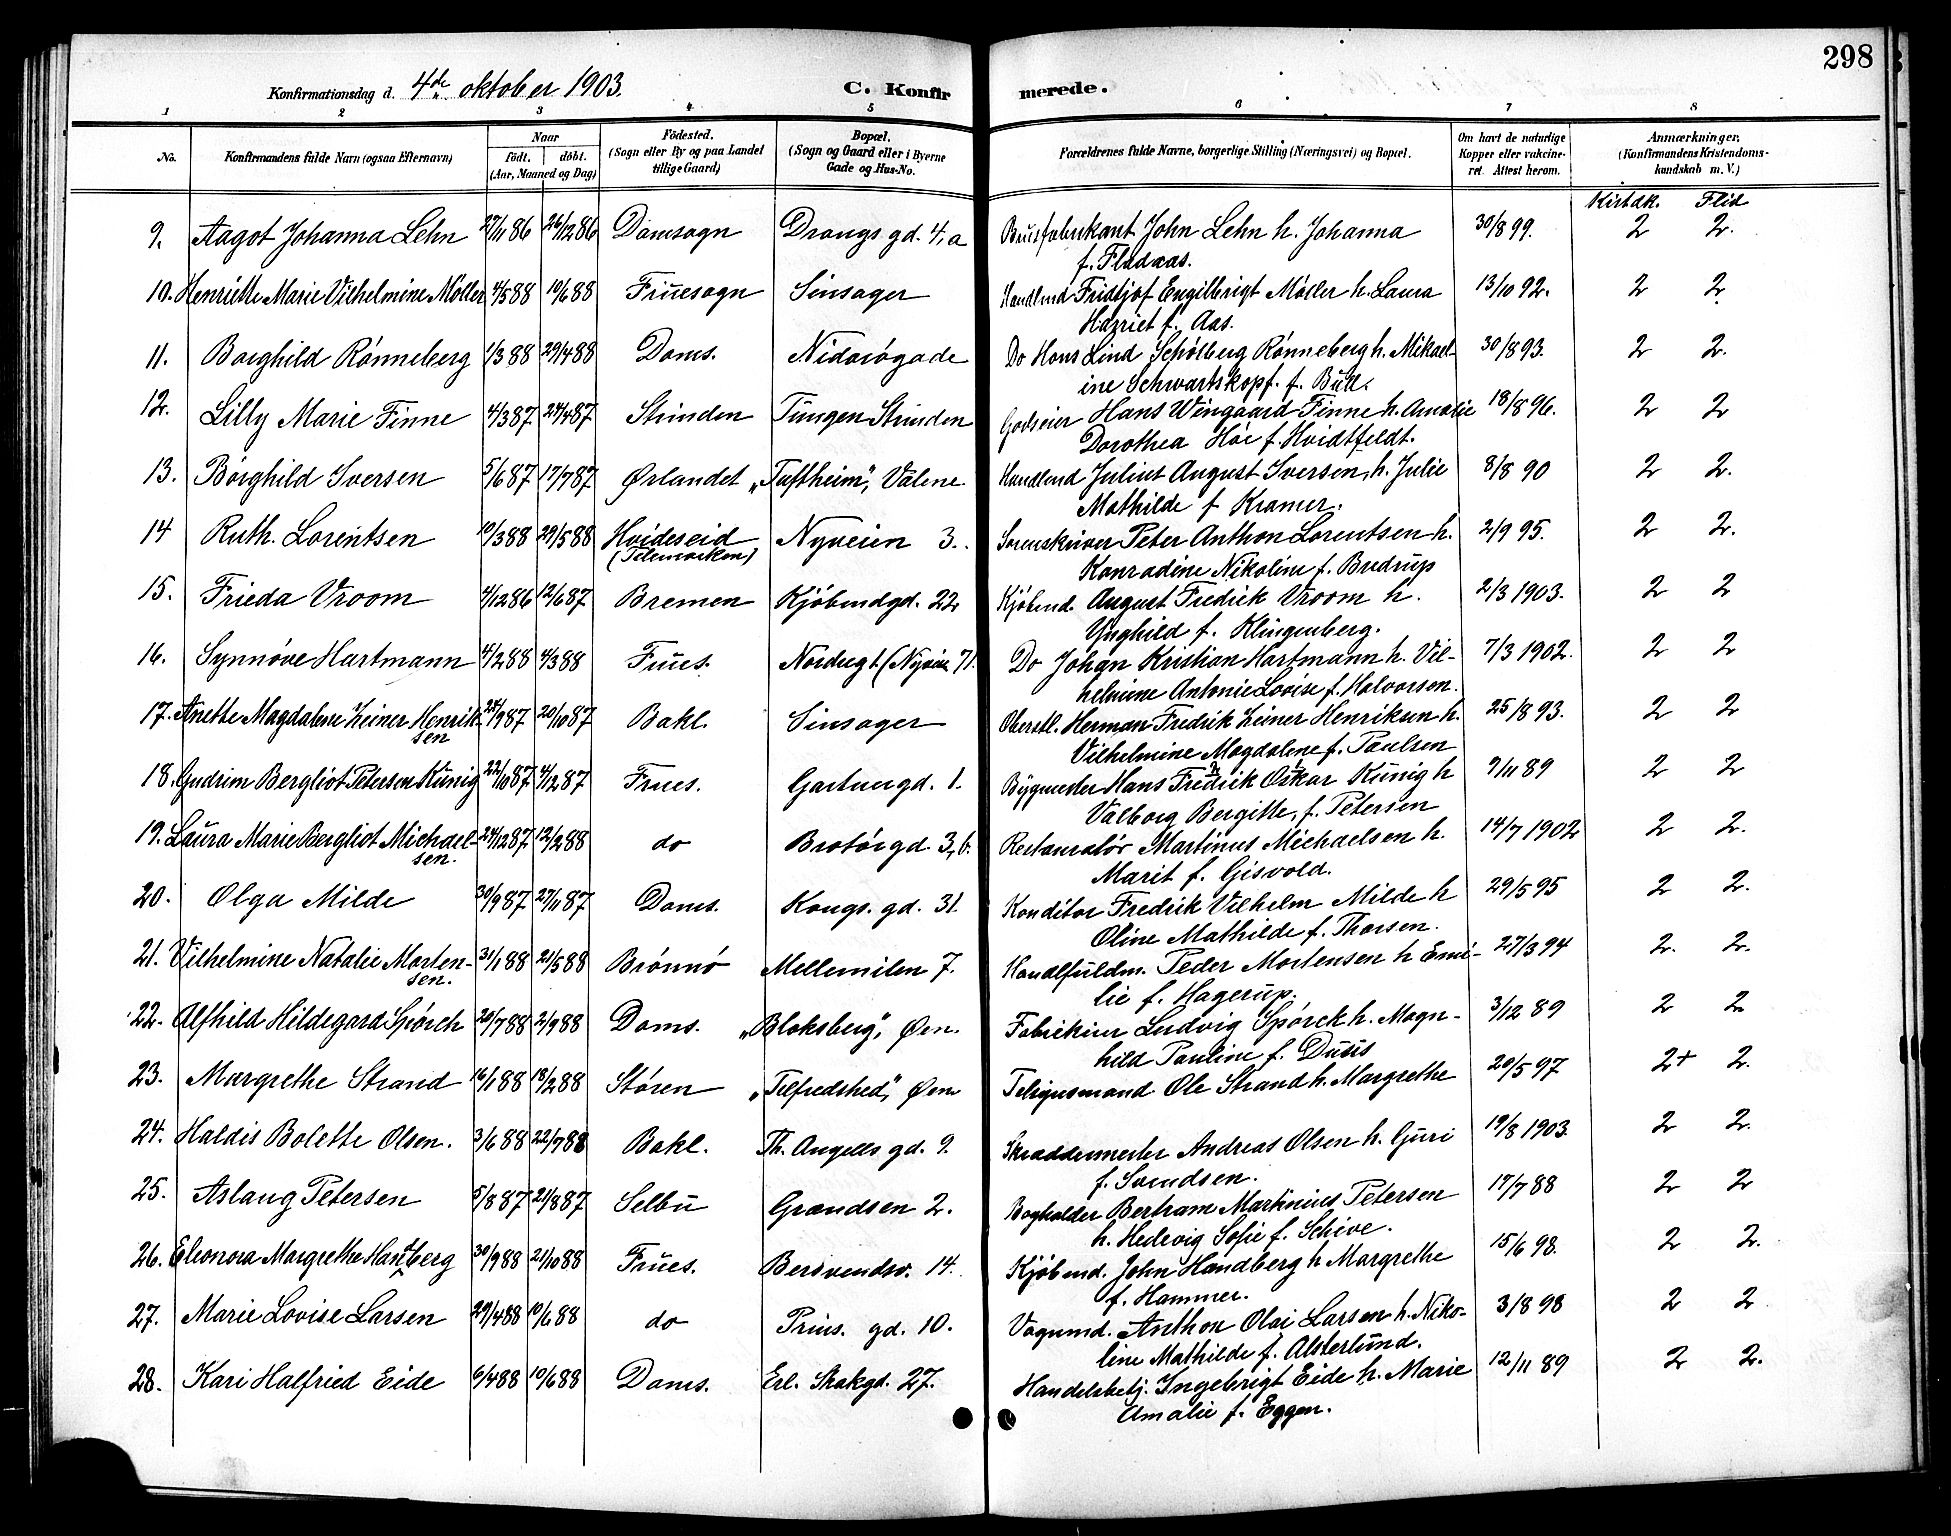 298
Konfirmationsdag d. 4de oktober 1903.
C. Konfirmerede.
1 2 3 4 5 6 7 8
No.
Konfirmandens fulde Navn (ogsaa Efternavn)
Naar
født. døbt.
(Aar, Maaned og Dag)
Fødested.
(Sogn eller By og paa Landet
tillige Gaard)
Bopæl.
(Sogn og Gaard eller i Byerne
Gade og Hus-No.
Forældrenes fulde Navne, borgerlige Stilling (Næringsvei) og Bopæl.
Om havt de naturlige
Kopper eller vakcine-
ret. Attest herom.
Anmærkninger.
(Konfirmandens Kristendoms-
kundskab m. V.)
Kirstdk. Flid
9. Aagot Johanna Lehn 27/11 86 26/12 86 Domsogn Drongs gd. 4, a John Lehn h. Johanna 30/8 99. 2 2.
f. Fladaas.
10. Henriette Marie Vilhelmine Møller 4/5 88 10/6 88 Fruesogn Sinsager Handlend Fridtjof Engilbrigt Møller h. Laura 13/10 92. 2 2
Harriet f. Aas.
11. Borghild Rønneberg 1/3 88 29/4 88 Doms. Nidarøgade Do Hans Lind Schølberg Rønneberg h. Mikael- 30/8 93. 2 2.
ine Schwartskopf. f. Bull.
12. Lilly Marie Finne 4/3 87 24/4 87 Strinden Tungen Strinden Godseier Hans Wingaard Finne h. Amalie 18/8 96. 2 2
Dorothea Høe f. Hvidtfeldt.
13. Borghild Iversen 5/6 87 17/7 87 Ørlandet „Tuftheim", Valene Handlend Julius August Iversen, h. Julie 8/8 90 2 2.
Mathilde f Kramer.
14 Ruth. Lorentsen 10/3 88 29/5 88 Hvideseid Nyveien 3. Sorenskriver Peter Anthon Lorentsen h. 2/9 95. 2 2.
(Telemarken) Konradine Nikoline f. Budrup
15. Frieda Vroom 4/12 86 12/6 87 Bremen Kjøbmdgd. 22 Kjøbmd. August Fredrik Vroom h. 2/3 1903. 2 2
Ynghild f. Klingenberg.
16. Synnøve Hartmann 4/2 88 4/3 88 Frues. Nordregt (Nyveien 71. Do Johan Kristian Hartmann h. Vil- 7/3 1902. 2 2
helmine Antonie Lovise f. Halvorsen.
17. Anette Magdalene Zeiner Henrik- 25/9 87 20/10 87 Bakl. Sinsager Oberstl. Herman Fredrik Zeiner Henriksen h. 25/8 93. 2 2
sen Vilhelmine Magdalene f. Paulsen
18. Gudrun Bergliot Petersen Kunig 22/10 87 4/12 87 Frues. Gartnergd. 1. Bygmester Hans Fredrik Oskar Kunig h 9/11 89 2 2
Valborg Bergitte, f. Petersen
19. Laura Marie Bergliot Michael- 24/12 87 12/2 88 do Bratørgd. 3, b. Restauratør Martinus Michaelsen h. 14/7 1902 2 2.
sen. Marit f. Gisvold.
20. Olga Milde 30/9 87 27/11 87 Doms. Kongs. gd. 31. Konditor Fredrik Vilhelm Milde h 29/5 95 2 2.
Oline Mathilde f. Thorsen.
21. Vilhelmine Natalie Morten- 31/1 88 21/5 88 Brønnø Mellemilen 7. Handlfuldm. Peder Mortensen h Emi- 27/3 94 2. 2.
sen. lie f. Hagerup.
22. Alfhild Hildegard Spørck 20/7 88 2/9 88 Doms. „Bloksberg", Øen. Fabrikeier Ludvig Spørck h. Magn- 3/12 89 2 2
hild Pauline f. Duus
23. Margrethe Strand 16/1 88 18/2 88 Støren „Tilfredshed", Øen Teligrmand Ole Strand h. Margrethe 20/5 97 2+ 2.
24. Haldis Bolette Olsen. 3/6 88 22/7 88 Bakl. Th. Angells gd. 9. Skræddermester Andreas Olsen h. Guri 19/8 1903. 2 2.
f. Svendsen.
25. Aslaug Petersen 5/8 87 21/8 87 Selbu Grændsen 2. Bogholder Bertram Martinius Petersen 17/7 88 2 2
h. Hedevig Sofie f. Schive.
26. Eleonora Margrethe Hantberg 30/9 88 21/10 88 Frues. Bersvendsv. 14. Kjøbmd. John Handberg h Margrethe 15/6 98. 2 2.
f. Hammer.
27. Marie Lovise Larsen 29/4 88 10/6 88 do Prins. gd. 10. Vognmd. Anthon Olai Larsen h. Niko- 3/8 98 2 2
line Mathilde f. Alsterlund.
28. Kari Halfried Eide 6/4 88 10/6 88 Doms. Erl. Skakgd. 27. Handelsbetj. Ingebrigt Eide h. Marie 12/11 89 2 2.
Amalie f. Eggen.